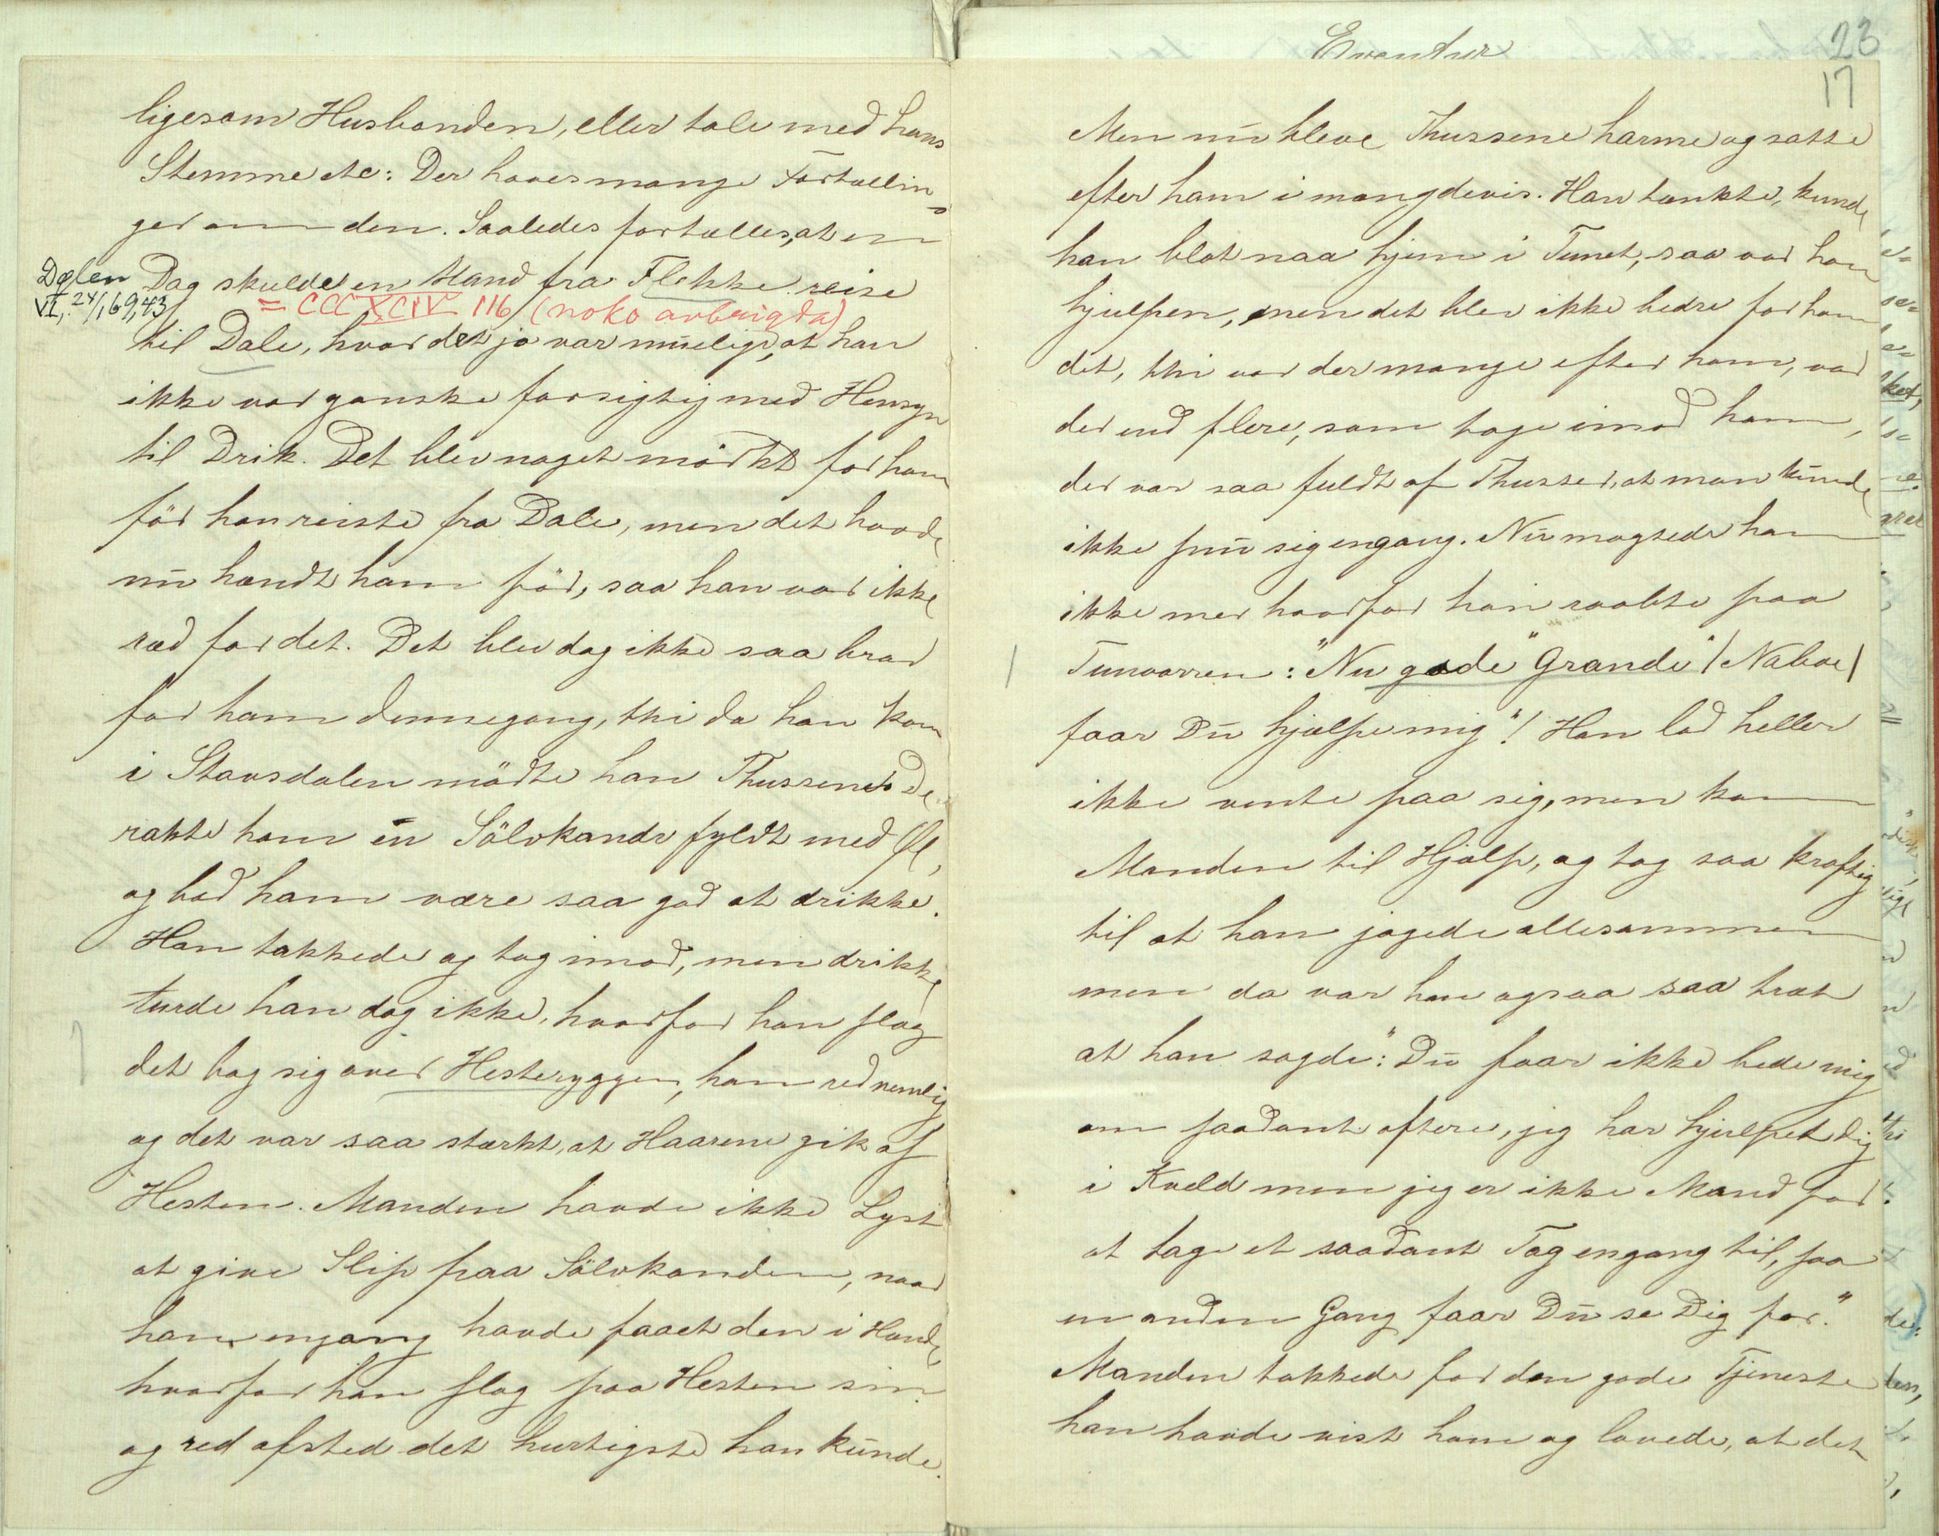 ligesom Husbonden, eller tale med hans
Stemme etc: Der haves mange Fortællin-
ger om den. Saaledes fortælles, at en
Dag skulde en Mand fra Flekke reise
Dølen
VI, 24/1 69, 43
= CCCXCIV 116 (noko avbrigda)
til Dale, hvor det jo var mueligt, at han
ikke var ganske forsigtig med Hensyn
til Drik. Det blev noget mørkt for ham
før han reiste fra Dale, men det havde
nu hændt ham før, saa han var ikke
ræd for det. Det blev dog ikke saa brav
for ham dennegang, thi da han kom
i Stavsdalen mødte han Thussene. De
rakte ham en Sölvkande fyldt med Øl,
og bad ham være saa god at drikke.
Han takkede og tog imod, men drikke
turde han dog ikke, hvorfor han slog
det bag sig over Hesteryggen, han red nemlig
og det var saa stærkt, at Haarene gik af
Hesten. Manden havde ikke Lyst
at give Slip paa Sölvkanden, naar
han engang havde faaet den i Hænde,
hvorfor han slog paa Hesten sin
og red afsted det hurtigste han kunde.
Eventyr
23
17
Men nu bleve Thussene harme og satte
efter ham i mængdevis. Han tænkte, kunde
han blot naa hjem i Tunet, saa var han
hjulpen, men det blev ikke bedre for ham
det, thi var der mange efter ham, var
der end flere, som toge imod ham,
der var saa fuldt af Thusser, at man kunde
ikke snu sig engang. Nu magtede han
ikke mer hvorfor han raabte paa
Tunvorren: "Nu gode "Grande" (Naboe)
faar Du hjælpe mig"! Han lod heller
ikke vente paa sig, men kom
Manden til Hjælp, og tog saa kraftig
til at han jagede allesammen
men da var han ogsaa saa træt
at han sagde: "Du faar ikke bede mig
om saadant oftere, jeg har hjulpet dig
i Kveld men jeg er ikke Mand for
at tage et saadant Tag engang til, saa
en anden Gang faar Du se Dig for."
Manden takkede for den gode Tjeneste
han havde vist ham og lovede, at det